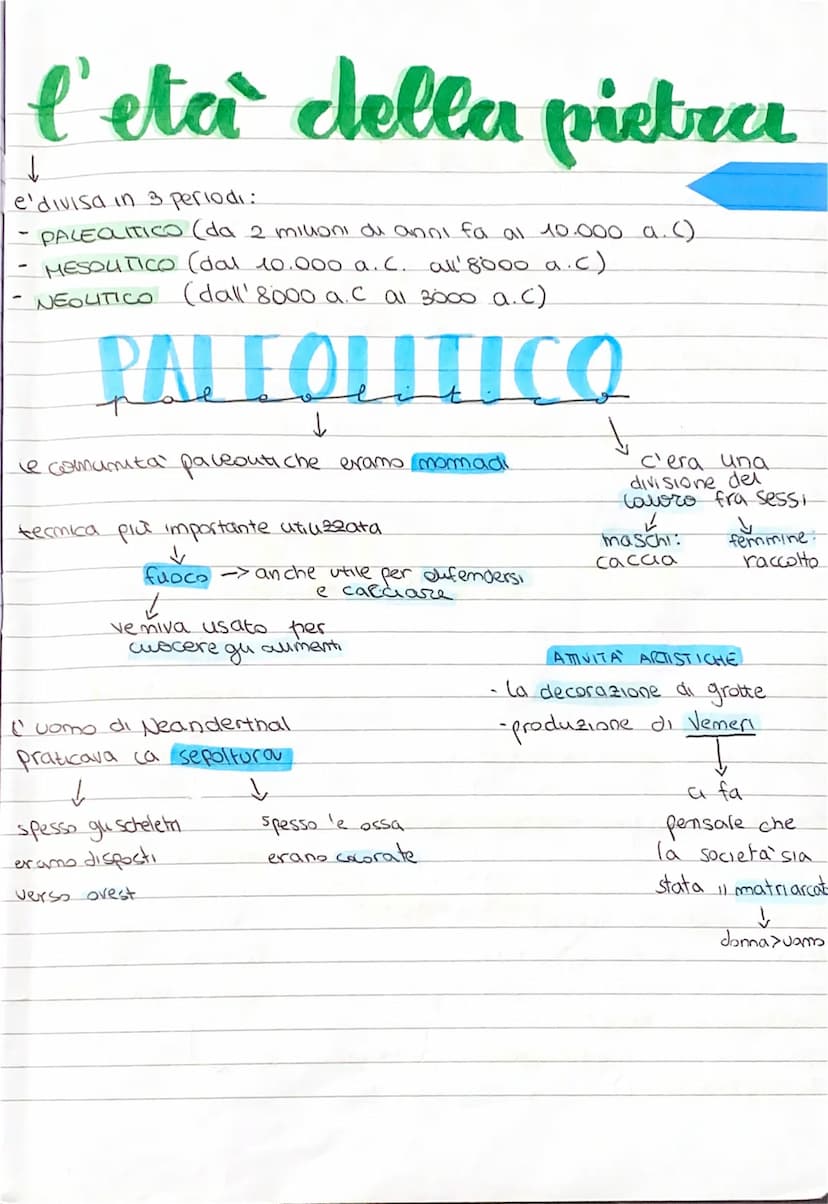 l'età della pietra
e' divisa in 3 periodi:
- PALEOLITICO (da 2 milioni di anni fa al 10.000 a.C)
- MESOLITICO (dal 10.000 a.C. all'8000 a.C)
- NEOLITICO (dall'8000 a.C al 3000 a.C)
PALEOLITICO
paleolitico
le comunità paleolitiche erano nomadi
c'era una
divisione del
lavoro fra sessi
maschi:
caccia
femmine:
raccolto
tecnica più importante utilizzata
fuoco -> anche utile per difendersi
e cacciare
veniva usato per
cuocere gli alimenti
ATTIVITA' ARTISTICHE
- la decorazione di grotte
- produzione di Veneri
ci fa
pensale che
la società sia
stata il matriarcat
donna>uomo
l'uomo di Neanderthal
praticava la sepoltura
spesso gli scheletri
erano disposti
verso ovest
spesso le ossa
erano colorate